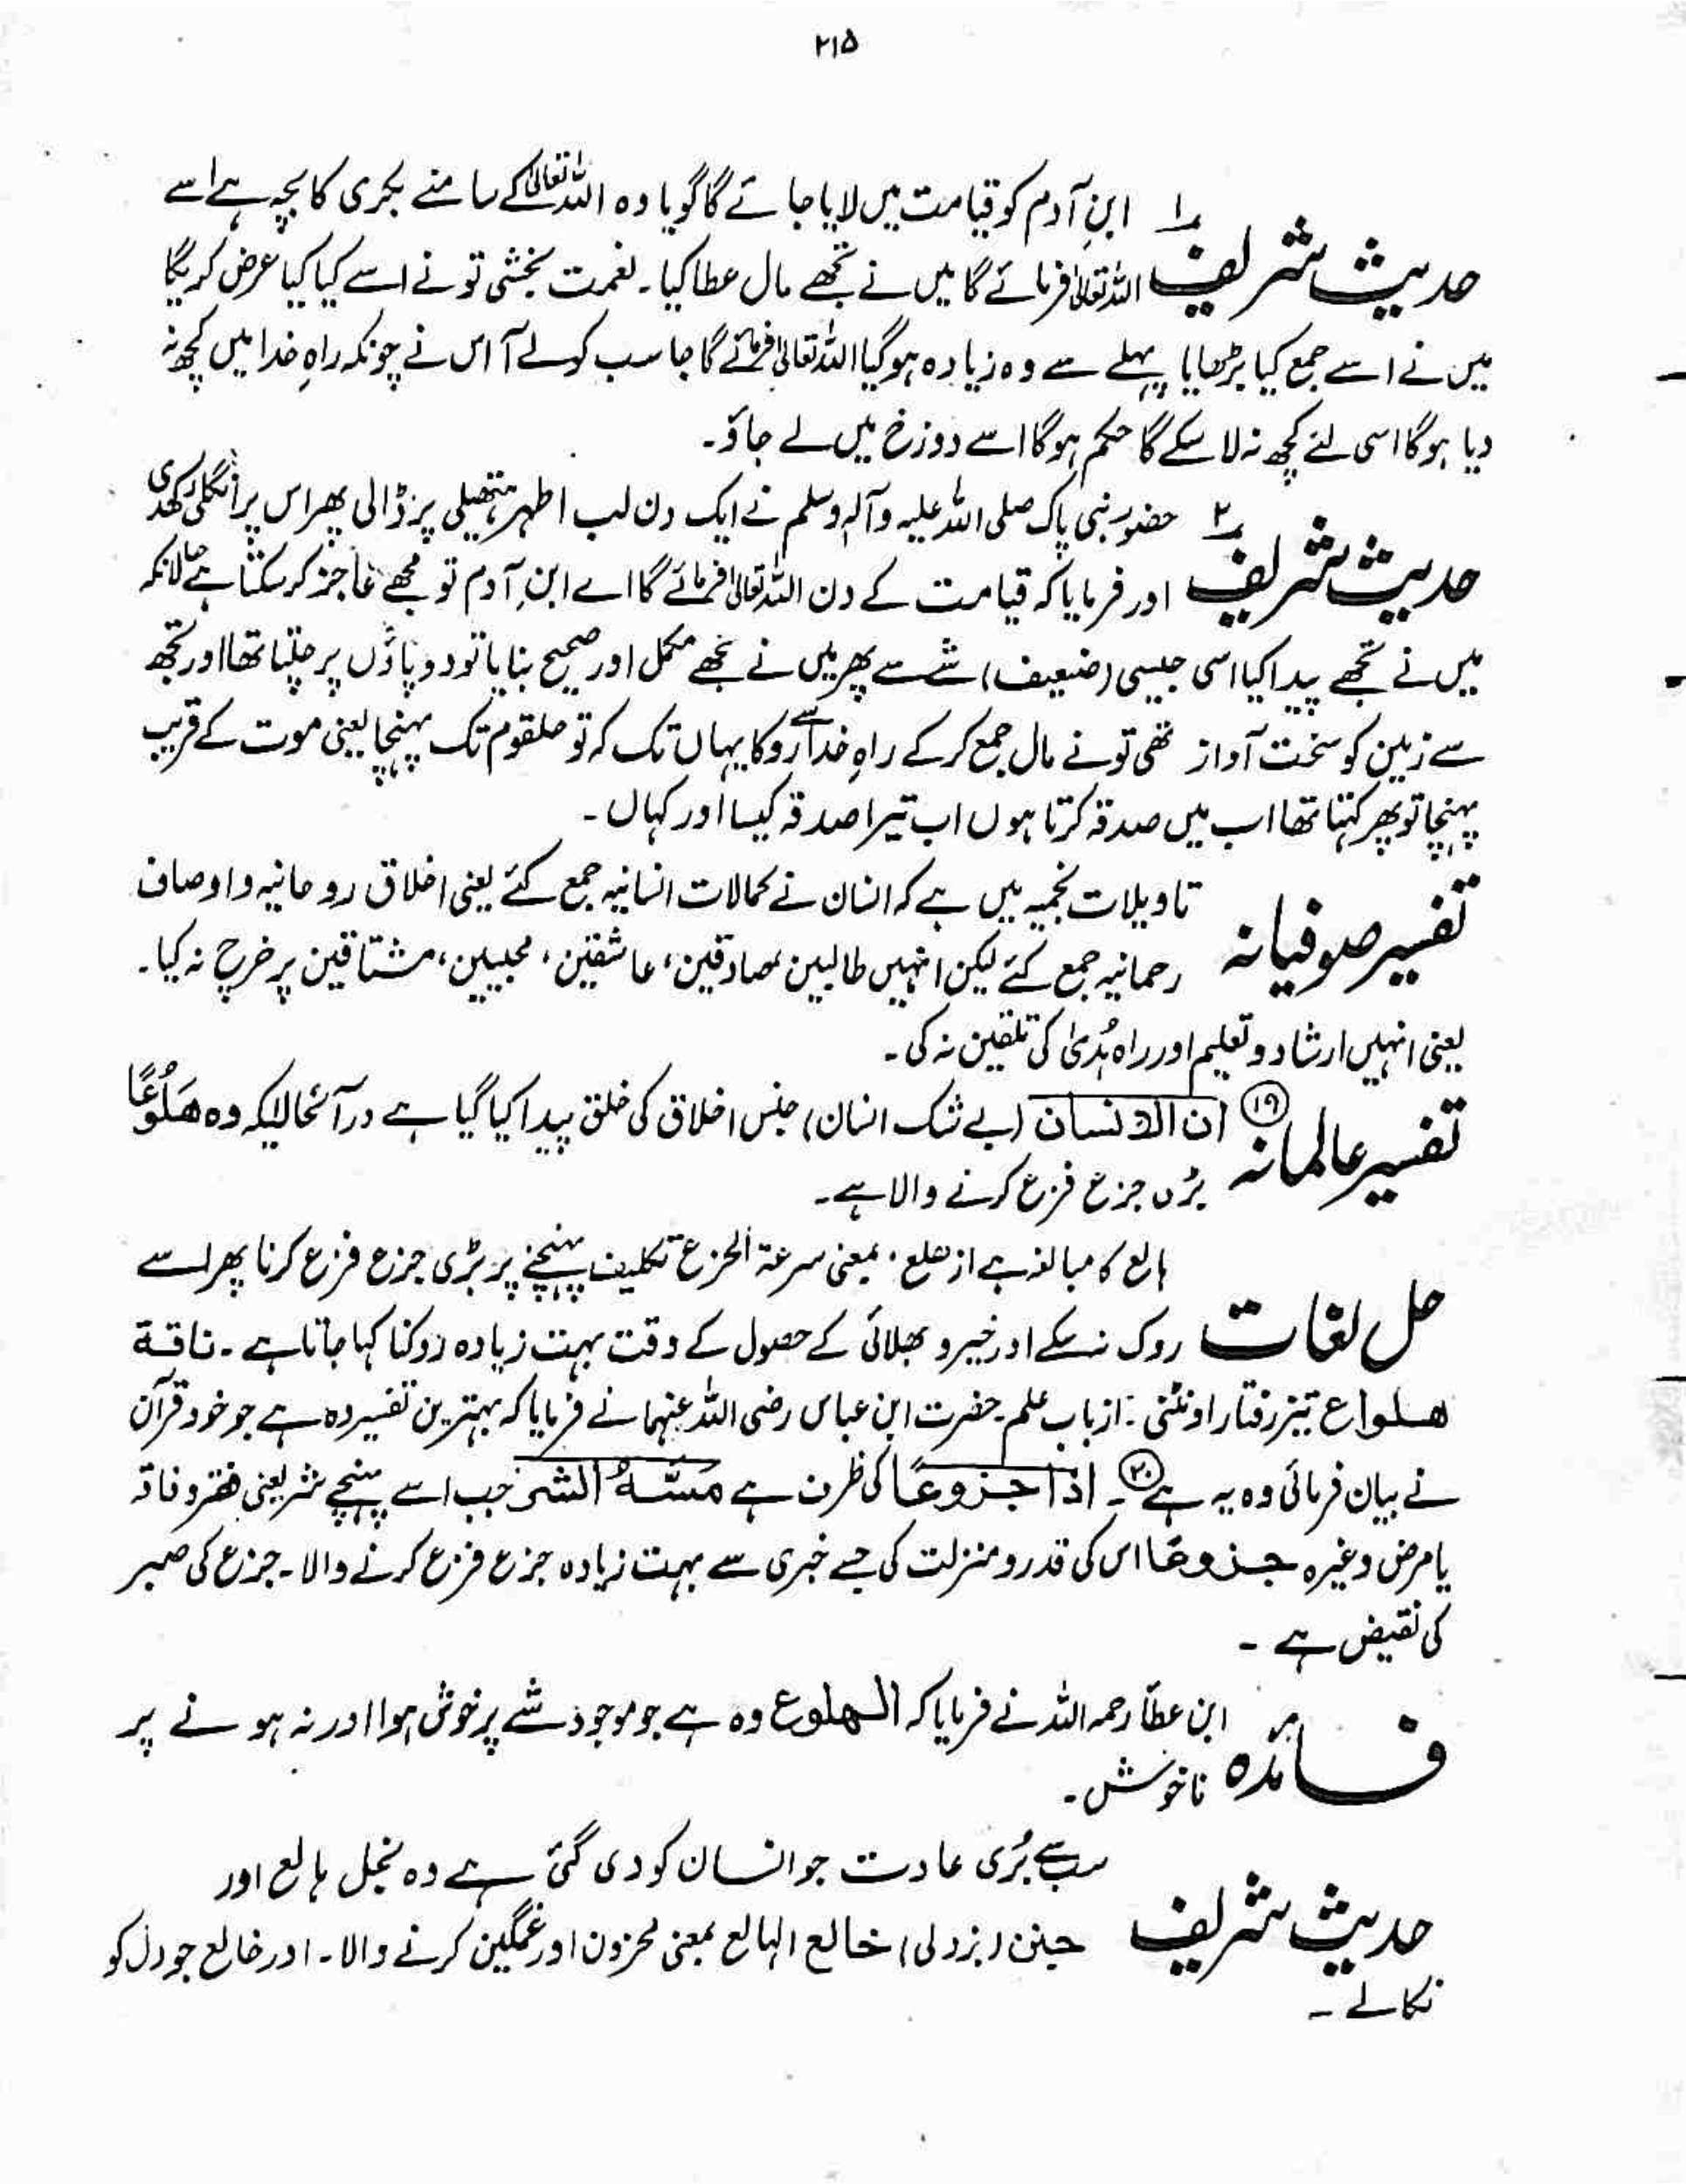 ۲۱۵
حدیث شریف ۱ ابنِ آدم کو قیامت میں لایا جائے گا گویا وہ اللہ تعالیٰ کے سامنے بکری کا بچہ ہے اسے
اللہ تعالیٰ فرمائے گا میں نے تجھے مال عطا کیا۔ نعمت بخشی تو نے اسے کیا کیا عرض کریگا
میں نے اسے جمع کیا بڑھایا پہلے سے وہ زیادہ ہوگیا اللہ تعالیٰ فرمائے گا جا سب کو لے آ اس نے چونکہ راہِ خدا میں کچھ نہ
دیا ہوگا اسی لئے کچھ نہ لا سکے گا حکم ہوگا اسے دوزخ میں لے جاؤ۔
حدیث شریف ۲ حضور نبی پاک صلی اللہ علیہ وآلہ وسلم نے ایک دن لب اطہر ہتھیلی پر ڈالی پھر اس پر انگلی رکھدی
اور فرمایا کہ قیامت کے دن اللہ تعالیٰ فرمائے گا اے ابنِ آدم تو مجھے عاجز کر سکتا ہے حالانکہ
میں نے تجھے پیدا کیا اسی جیسی (ضعیف) شے سے پھر میں نے تجھے مکمل اور صحیح بنایا تو دو پاؤں پر چلتا تھا اور تجھ
سے زمین کو سخت آواز تھی تو نے مال جمع کرکے راہِ خدا سے روکا یہاں تک کہ تو حلقوم تک پہنچا یعنی موت کے قریب
پہنچا تو پھر کہتا تھا اب میں صدقہ کرتا ہوں اب تیرا صدقہ کیسا اور کہاں۔
تفسیر صوفیانہ تاویلات نجمیہ میں ہے کہ انسان نے کمالات انسانیہ جمع کئے یعنی اخلاق روحانیہ و اوصاف
رحمانیہ جمع کئے لیکن انہیں طالبین صادقین، عاشقین، محبیین، مشتاقین پر خرچ نہ کیا۔
یعنی انہیں ارشاد و تعلیم اور راہ ہُدیٰ کی تلقین نہ کی۔
تفسیر عالمانہ ⑲ ان الانسان (بے شک انسان) جنس اخلاق کی خلق پیدا کیا گیا ہے درآنحالیکہ وہ هَلُوْعًا
بڑی جزع فزع کرنے والا ہے۔
حل لغات ہالع کا مبالغہ ہے از ھلع، بمعنی سرعۃ الحزع تکلیف پہنچنے پر بڑی جزع فزع کرنا پھر اسے
روک نہ سکے اور خیر و بھلائی کے حصول کے وقت بہت زیادہ روکنا کہا جاتا ہے۔ ناقة
ھلواع تیز رفتار اونٹنی : از باب علم۔ حضرت ابن عباس رضی اللہ عنہما نے فرمایا کہ بہترین تفسیر وہ ہے جو خود قرآن
نے بیان فرمائی وہ یہ ہے ⑳۔ اذا جزوعًا کی ظرف ہے مَسَّهُ الشر جب اسے پہنچے شر یعنی فقر و فاقہ
یا مرض وغیرہ جزوعًا اس کی قدر و منزلت کی بے خبری سے بہت زیادہ جزع فزع کرنے والا۔ جزع کی صبر
کی نقیض ہے ۔
فائدہ ابن عطاؔ رحمہ اللہ نے فرمایا کہ الھلوع وہ ہے جو موجود شے پر خوش ہوا اور نہ ہونے پر
ناخوش۔
حدیث شریف سب سے بُری عادت جو انسان کو دی گئی ہے وہ بخل ہالع اور
جبن (بزدلی) خالع الہالع بمعنی محزون اور غمگین کرنے والا۔ اور خالع جو دل کو
نکالے ۔